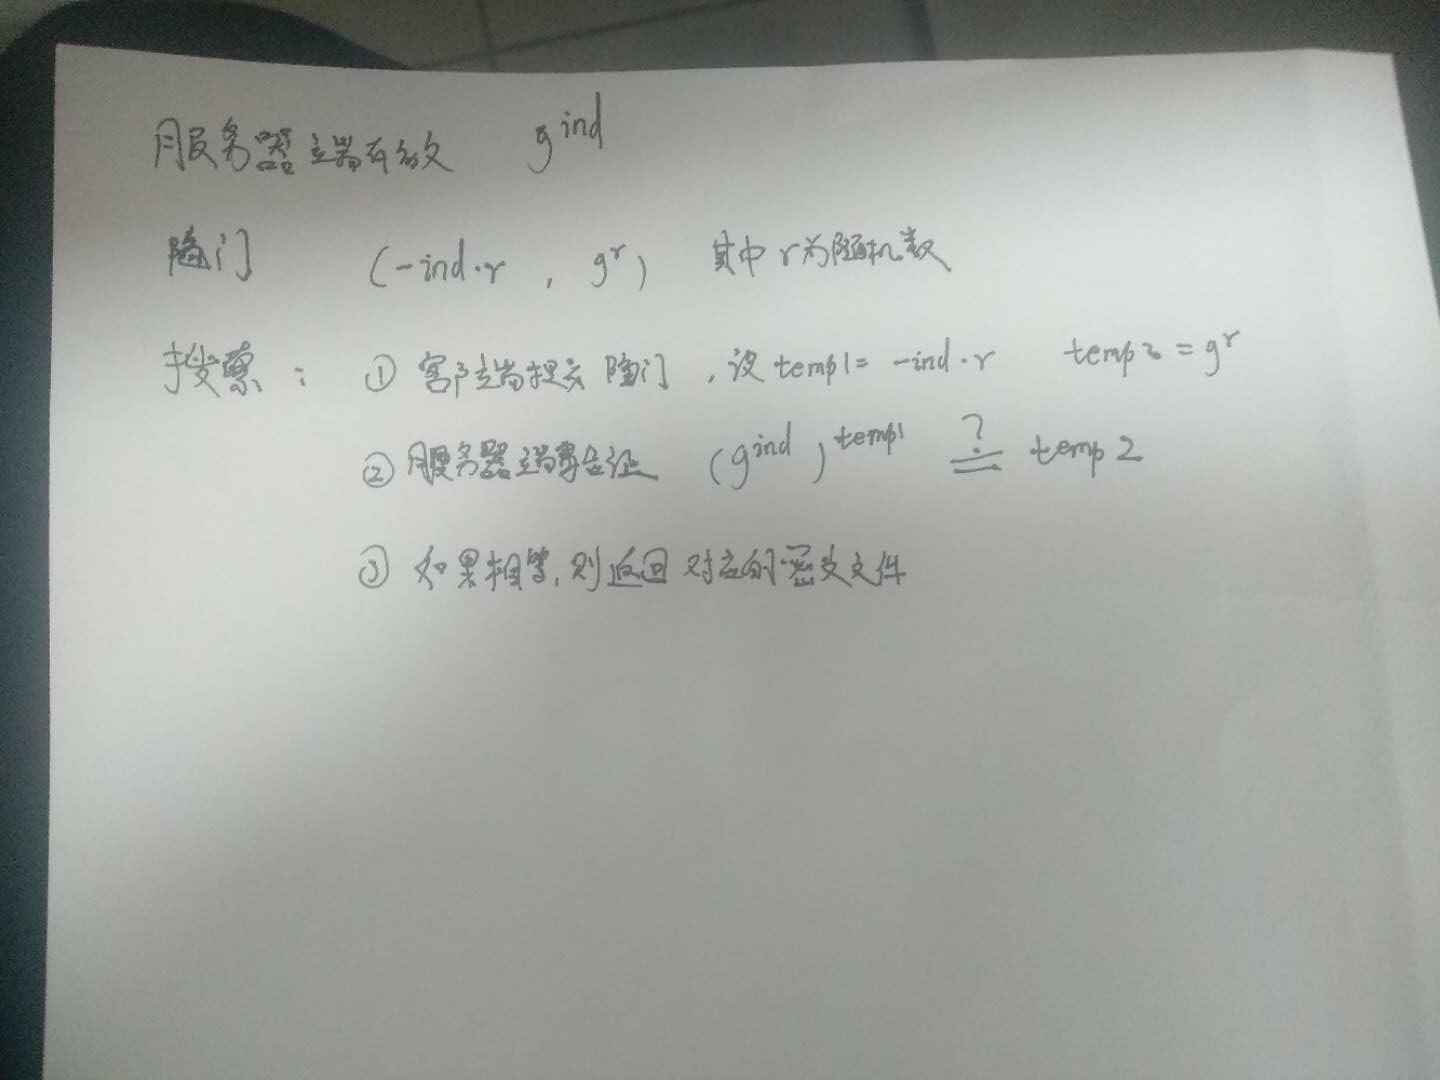 服务器端存放 g^ind
陷门 (-ind·r , g^r) 其中r为随机数
搜索： ① 客户端提交陷门，设temp1= -ind·r temp2 = g^r
② 服务器端验证 (g^ind)^temp1 ≟ temp2
③ 如果相等,则返回对应的密文文件